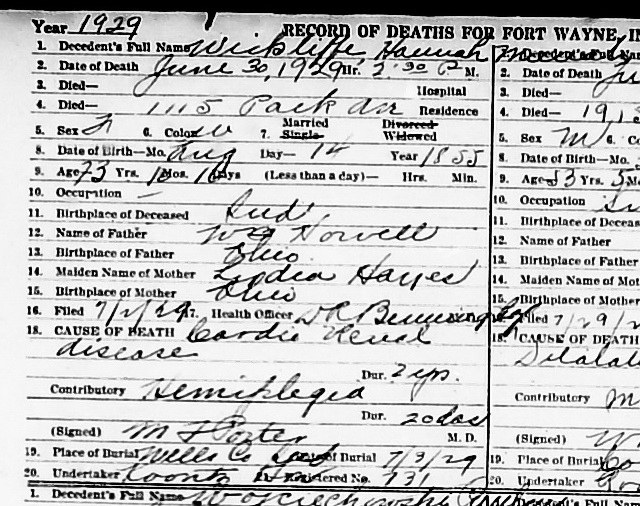 Year 1929 RECORD OF DEATHS FOR FORT WAYNE, IN
1. Decedent's Full Name Wickliffe, Hannah
2. Date of Death June 30, 1929 Hr. 2:30 P M.
3. Died— Hospital
4. Died— 1115 Park Av Residence
5. Sex F 6. Color W 7. Married Single Divorced Widowed
8. Date of Birth—Mo. Aug Day— 14 Year 1855
9. Age 73 Yrs. 10 Mos. 16 Days (Less than a day)— Hrs. Min.
10. Occupation —
11. Birthplace of Deceased Ind
12. Name of Father Wm Norvell
13. Birthplace of Father Ohio
14. Maiden Name of Mother Lydia Hayes
15. Birthplace of Mother Ohio
16. Filed 7/2/29 17. Health Officer
18. CAUSE OF DEATH Cardio Renal
disease
Dur. 2 yrs.
Contributory Hemiplegia
Dur. 20 das
(Signed) M F Porter M. D.
19. Place of Burial Wells Co Ind Date of Burial 7/3/29
20. Undertaker 21. Registered No. 731
1. Decedent's Full Name Wojciechowski
Decedent's Full
2. Date of Death Ju
3. Died—
4. Died— 191
5. Sex M 6. Co
8. Date of Birth—Mo.
9. Age 83 Yrs. 5 M
10. Occupation
11. Birthplace of Deceas
12. Name of Father
13. Birthplace of Father
14. Maiden Name of Moth
15. Birthplace of Mother
Filed 7/29/2
18. CAUSE OF DEATH
Dilatat
Contributory M
(Signed) W
19. Place of Burial
20. Undertaker
1. Decedent's Full Nam